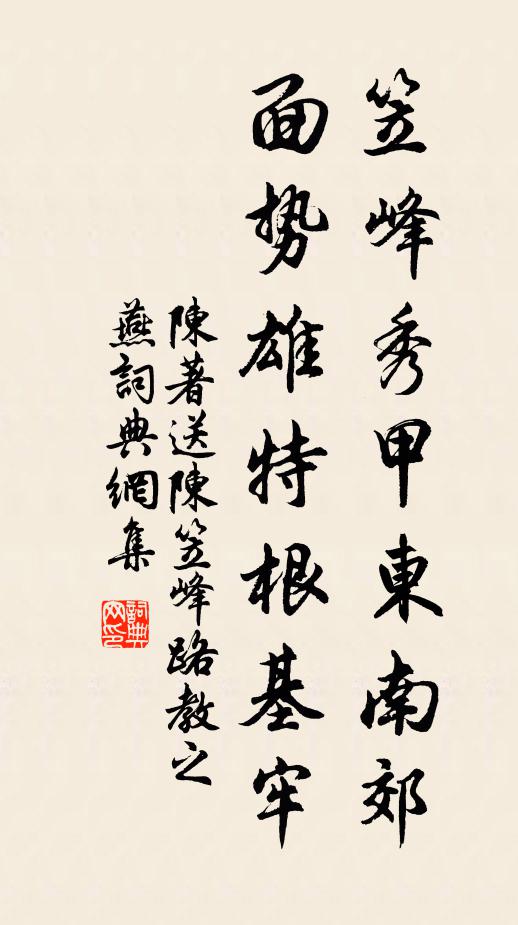 笠峰秀甲東南郊
面势雄特根基牢
陳著送陳笠峰路教之
燕詞典網集
詞典网印